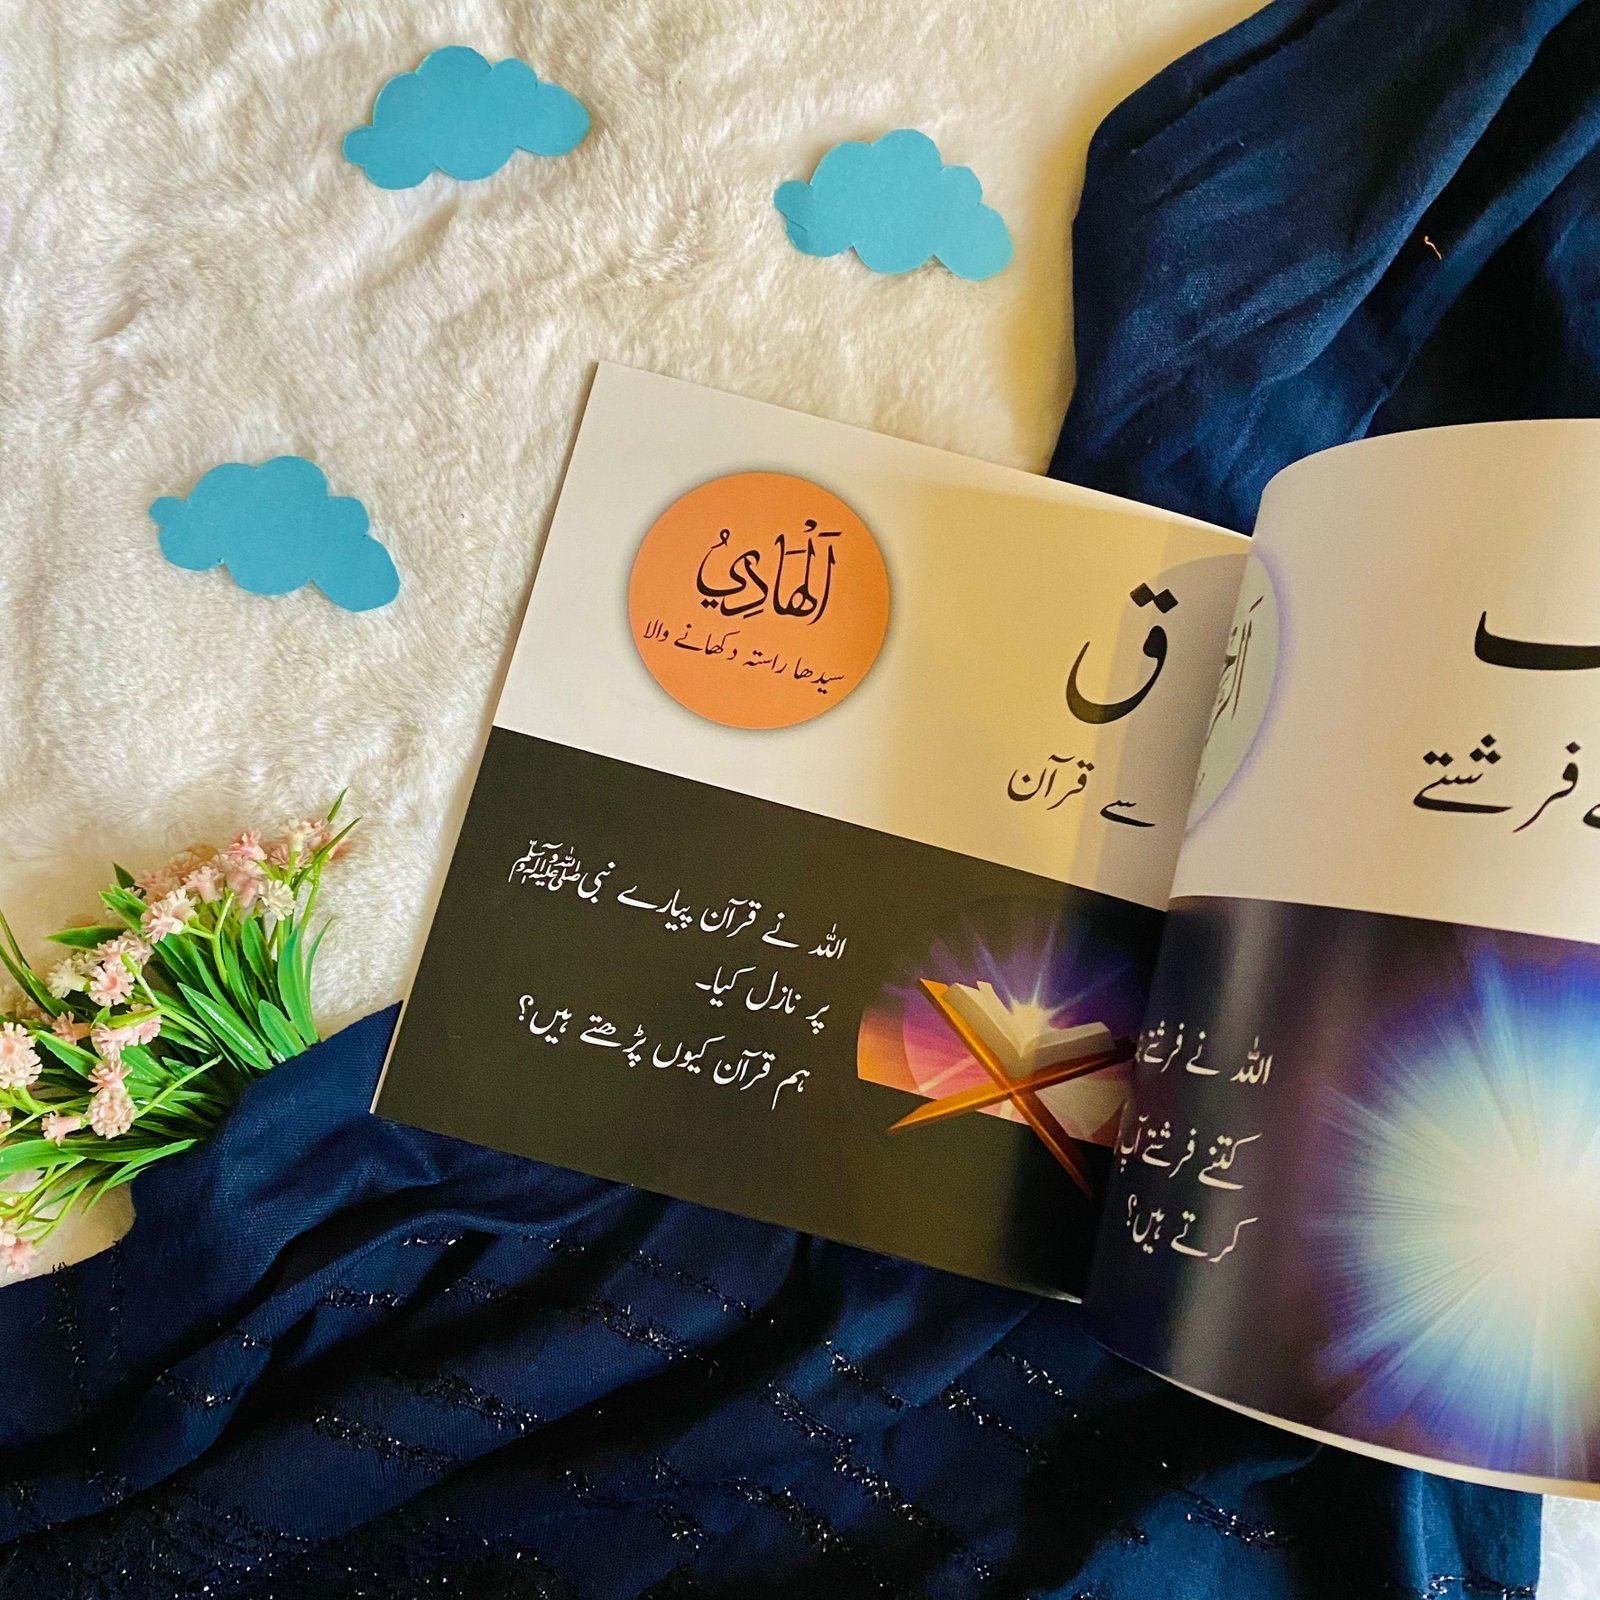 ق
سے قرآن
اَلْهَادِيُ
سیدھا راستہ دکھانے والا
اللہ نے قرآن پیارے نبی ﷺ
پر نازل کیا۔
ہم قرآن کیوں پڑھتے ہیں؟
فرشتے
اللہ نے فرشتے
کتنے فرشتے آپ
کرتے ہیں؟